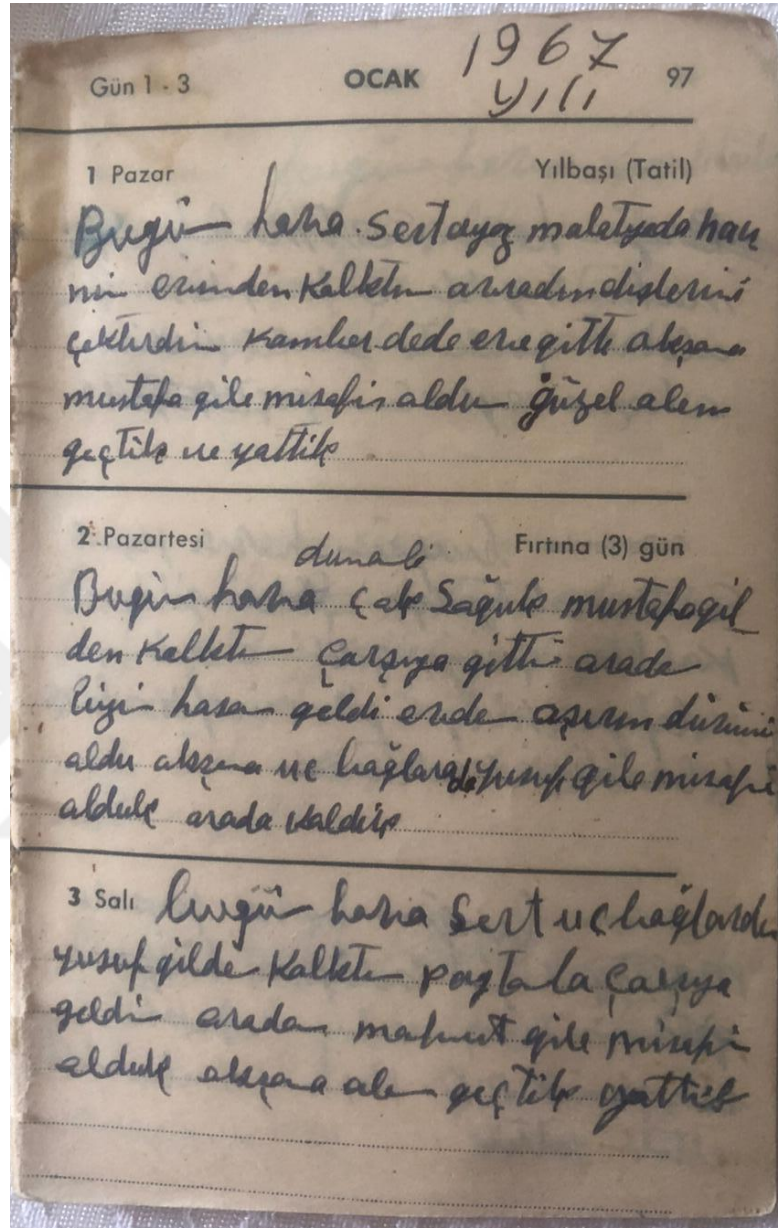 Gün 1 - 3 OCAK 1967 yılı 97
1 Pazar Yılbaşı (Tatil)
Bugün hava sert ayaz malatyada han
mın evinden kalktım dişlerini
çektirdim Kamber dede eve gitti akşama
mustafa gile misafir oldum güzel alem
geçtik ve yattik
2 Pazartesi Fırtına (3) gün
dumanlı
Bugün hava çok Soğuk mustafagil
den kalktım Çarşıya gittim orada
hasan geldi evde
oldu akşama uc bağlarda yusuf gile misafir
olduk orada kaldık
3 Salı bugün hava Sert uc bağlarda
yusuf gilde kalktım Çarşıya
geldim oradan mahmut gile misafir
olduk akşama alem geçtik yattik